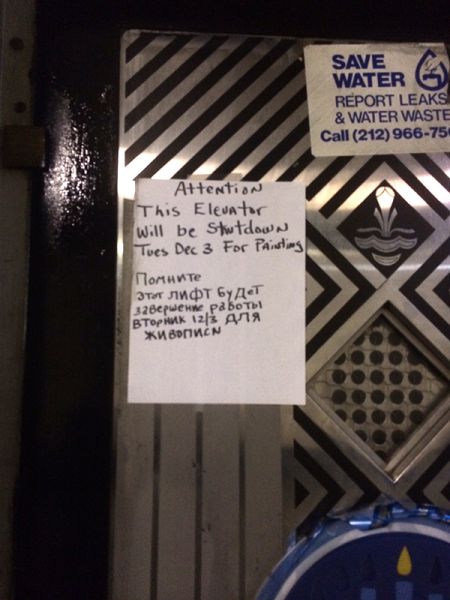 SAVE
WATER
REPORT LEAKS
& WATER WASTE
Call (212) 966-750
Attention
This Elevator
Will be Shutdown
Tues Dec 3 For Painting
Помните
этот лифт будет
завершение работы
вторник 12/3 для
живописи